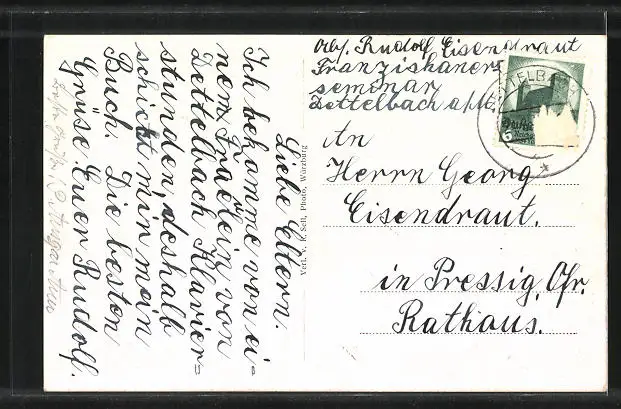 Liebe Eltern.
Ich bekomme von ei-
nem Fräulein von
Dettelbach Klavier=
stunden, deshalb
schickt mir mein
Buch. Die besten
Grüße Euer Rudolf.
Verl. v. R. Sell, Photo, Würzburg
Abs. Rudolf Eisendraut
Franziskaner=
seminar
Dettelbach a/M.
An
Herrn Georg
Eisendraut.
in Pressig, Ofr.
Rathaus.
TELBACH
6